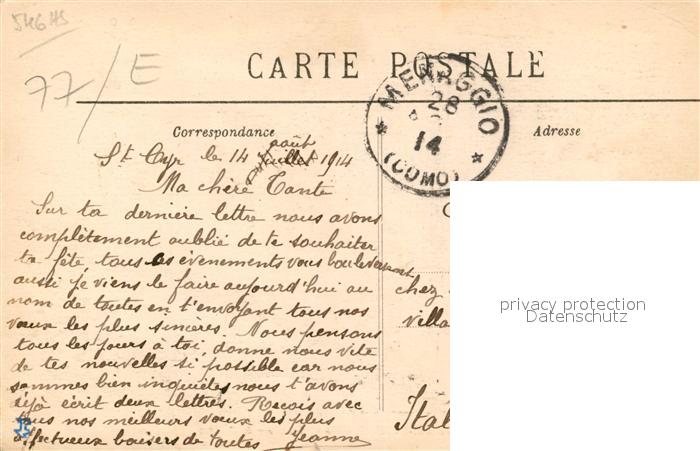 546 HS
77/E
CARTE POSTALE
MENAGGIO
28
14
(COMO)
Correspondance
Adresse
août
St Cyr le 14 juillet 1914
Ma chère Tante
Sur ta dernière lettre nous avons
complètement oublié de te souhaiter
ta fête, tous les évènements vous bouleversent
aussi je viens le faire aujourd'hui au
nom de toutes en t'envoyant tous nos
vœux les plus sincères. Nous pensons
tous les jours à toi, donne nous vite
de tes nouvelles si possible car nous
sommes bien inquiètes nous t'avons
déjà écrit deux lettres. Reçois avec
tous nos meilleurs vœux les plus
affectueux baisers de toutes Jeanne
chez
villa
Ital
privacy protection
Datenschutz